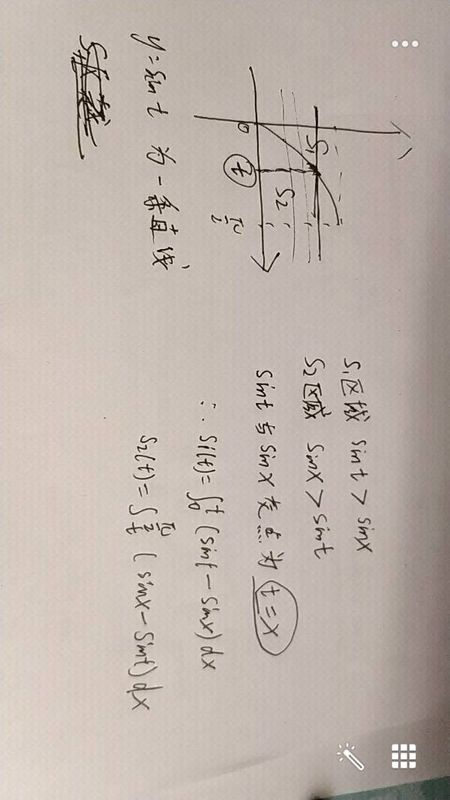 S₁
S₂
0
t
π/2
y=sint 为一条直线
S₁区域 sint>sinx
S₂区域 sinx>sint
sint与sinx交点为 t=x
∴ S₁(t)=∫₀ᵗ(sint-sinx)dx
S₂(t)=∫ₜ^(π/2)(sinx-sint)dx